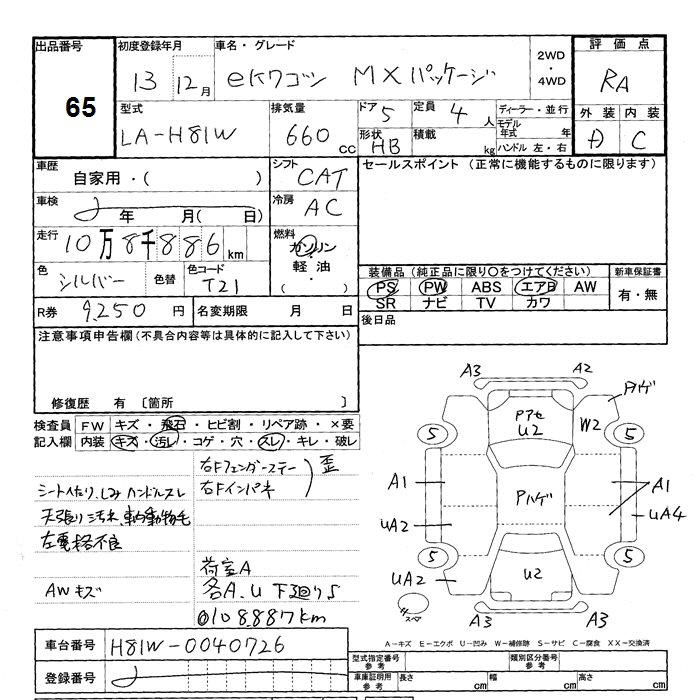 出品番号 初度登録年月 車名・グレード 評価点
65 13 12月 eKワゴン MXパッケージ 2WD・4WD RA
型式 排気量 ドア 5 定員 4人 ディーラー・並行 外装 内装
LA-H81W 660cc 形状 HB 積載 kg モデル年式 年 ハンドル 左・右 C
車歴 自家用・( ) シフト CAT セールスポイント (正常に機能するものに限ります)
車検 年 月( 日) 冷房 AC
走行 10万8千886km 燃料 ガソリン・軽油・( )
色 シルバー 色替 色コード T21 装備品 (純正品に限り○をつけてください) 新車保証書
PS PW ABS エアB AW 有・無
SR ナビ TV カワ
R券 9,250円 名変期限 月 日 後日品
注意事項申告欄 (不具合内容等は具体的に記入して下さい)
修復歴 有 〔箇所 〕
検査員記入欄 FW キズ・飛石・ヒビ割・リペア跡・×要
内装 キズ・汚レ・コゲ・穴・スレ・キレ・破レ
右Fフェンダーステー 歪
右Fインパネ
シートへたり、しみ ハンドルスレ
天張り汚れ
AWキズ
荷室A
各A.U 下廻りS
108.887km
A3 A2 ハゲ
Pアセ U2 W2
5 5
A1 Pハゲ A1
UA2 UA4
5 5
UA2 U2
A3 A3
スペア
A-キズ E-エクボ U-凹み W-補修跡 S-サビ C-腐食 XX-交換済
車台番号 H81W-0040726 型式指定番号 参考 類別区分番号 参考
登録番号 車庫証明用 参考 長さ cm 幅 cm 高さ cm